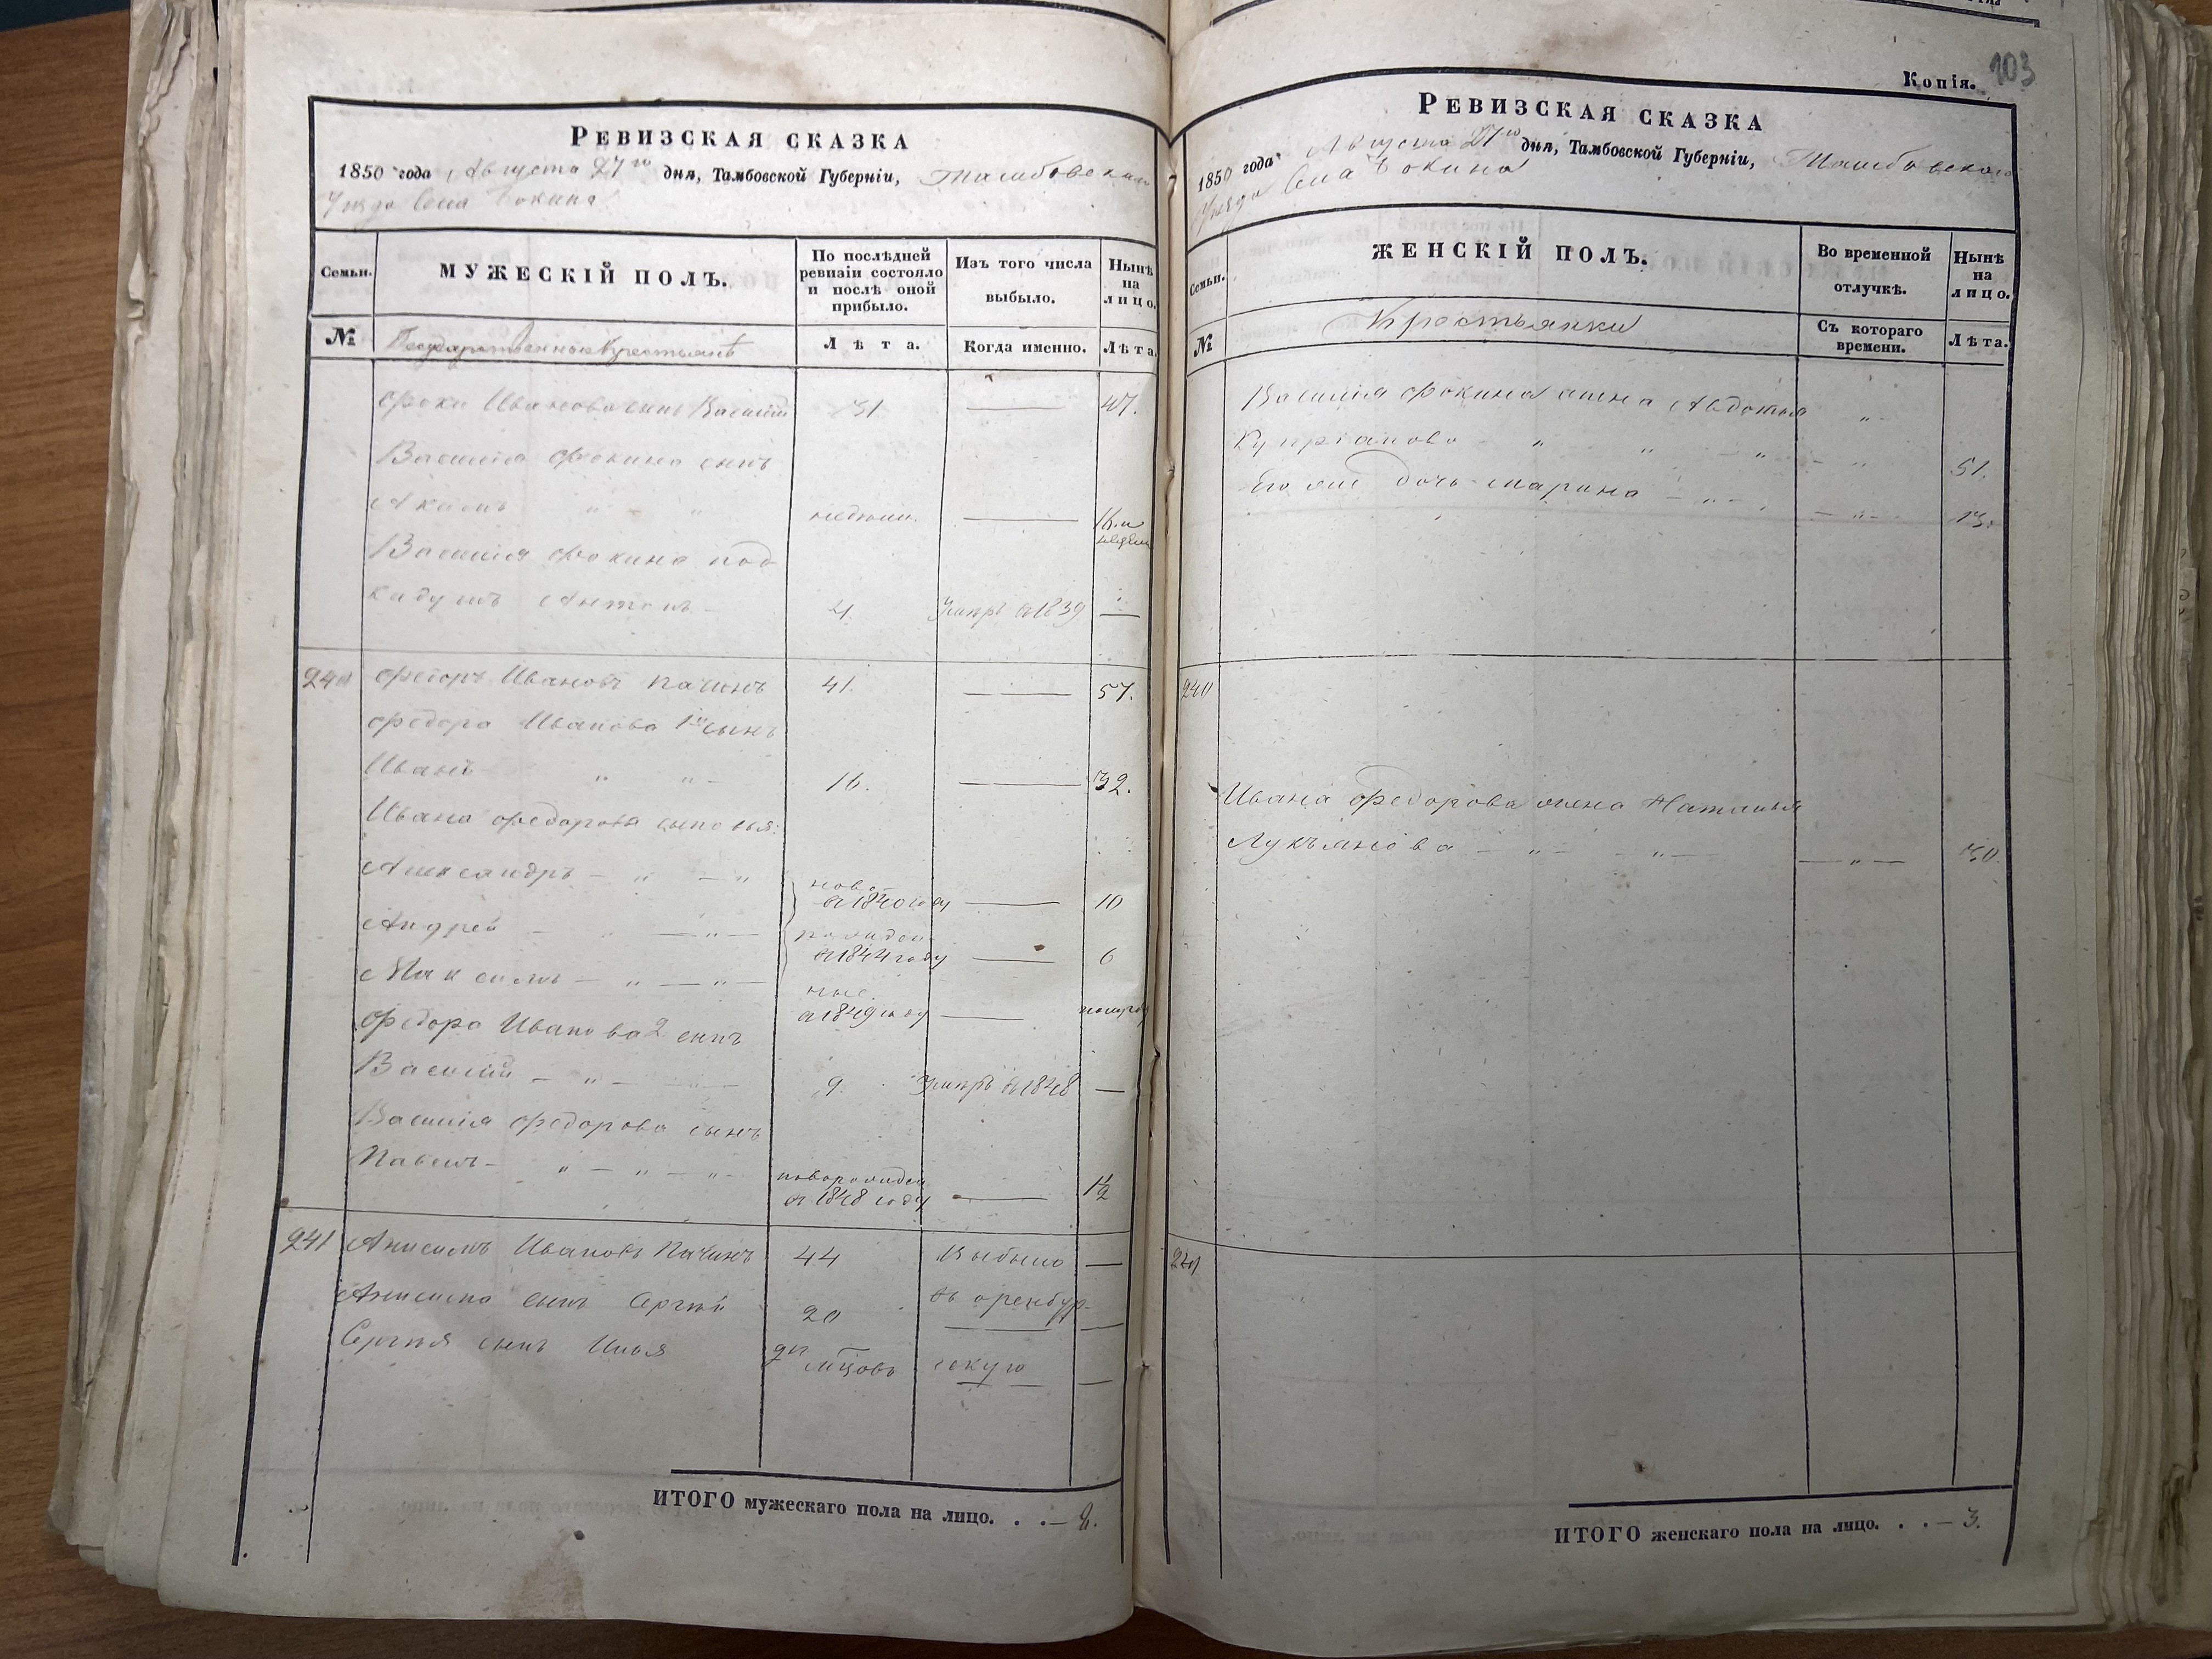 Копія.
103
РЕВИЗСКАЯ СКАЗКА
1850 года Августа 27го дня, Тамбовской Губерніи, Тамбовскаго
Уѣзда Села Бокина
Семьи.
МУЖЕСКІЙ ПОЛЪ.
По послѣдней
ревизіи состояло
и послѣ оной
прибыло.
Изъ того числа
выбыло.
Нынѣ
на
лицо.
№
Государственные Крестьянѣ
Лѣта.
Когда именно.
Лѣта.
Фоки Иванова сынъ Василій 31 — 47.
Василія Фокина сынъ
Акимъ " " недѣли. —
Василія Фокина под
кидышъ Антонъ 4. Умеръ въ 1839 —
240 Федоръ Ивановъ Пачинъ 41. — 57.
Федора Иванова 1й сынъ
Иванъ " " 16. — 32.
Ивана Федорова сыновья:
Александръ — " — " ново-
въ 1840 году — 10
Андрей — " — " — рожден-
въ 1844 году — 6
Максимъ — " — " — ные.
въ 1849 году —
Федора Иванова 2 сынъ
Василій — " — 9. Умеръ въ 1848 —
Василія Федорова сынъ
Павелъ — " — " — " новорожден
въ 1848 году — 1½
241 Анисимъ Ивановъ Пачинъ 44 Выбыло —
Анисима сынъ Сергѣй 20 въ оренбур- —
Сергѣя сынъ Илья мѣцовъ скую —
ИТОГО мужескаго пола на лицо. . . — 8.
РЕВИЗСКАЯ СКАЗКА
1850 года Августа 27го дня, Тамбовской Губерніи, Тамбовскаго
Уѣзда Села Бокина
Семьи.
ЖЕНСКІЙ ПОЛЪ.
Во временной
отлучкѣ.
Нынѣ
на
лицо.
№
Крестьянки
Съ котораго
времени.
Лѣта.
Василія Фокина жена Авдотья "
Купріянова " " " — " 51.
Его же дочь Марина — " — — " — 13.
240
Ивана Федорова жена Наталья
Лукьянова — " — — " — — " — 30.
241
ИТОГО женскаго пола на лицо. . . — 3.